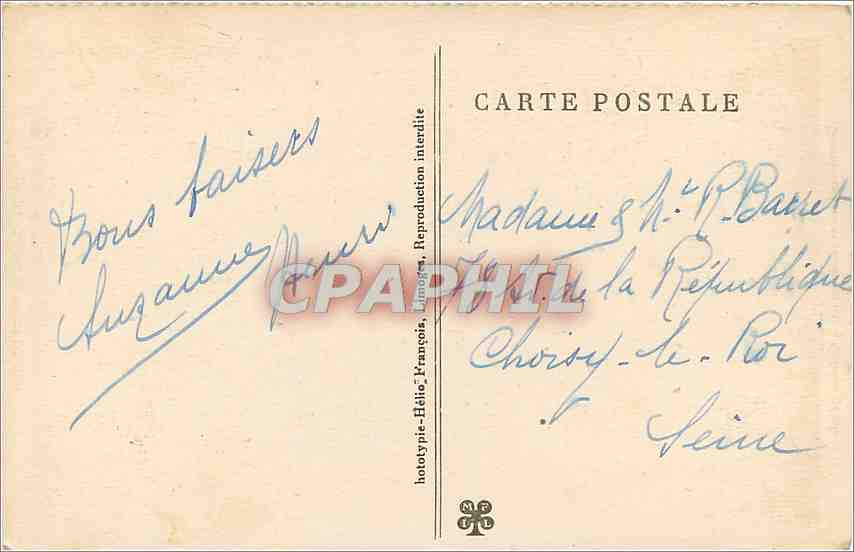 Bons baisers
Suzanne Henri
hototypie-Hélio" François, Limoges, Reproduction interdite
CARTE POSTALE
Madame & Mr. R. Barret
Av. de la République
Choisy-le-Roi
Seine
M F
I L
CPAPHIL